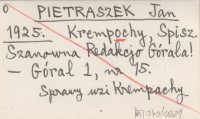 0
PIETRASZEK Jan
1925. Krempochy, Spisz.
Szanowna Redakcjo Górala!
— Góral 1, nr 15.
Sprawy wsi Krempachy.